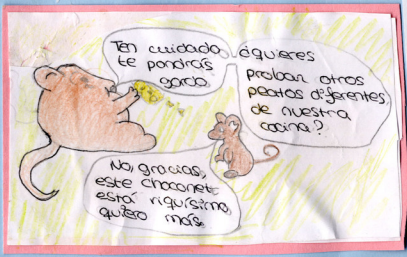 Ten cuidado,
te pondrás
gordo.
¿quieres
probar otros
platos diferentes
de nuestra
cocina?
No, gracias,
este choconett
está riquísimo,
quiero más.